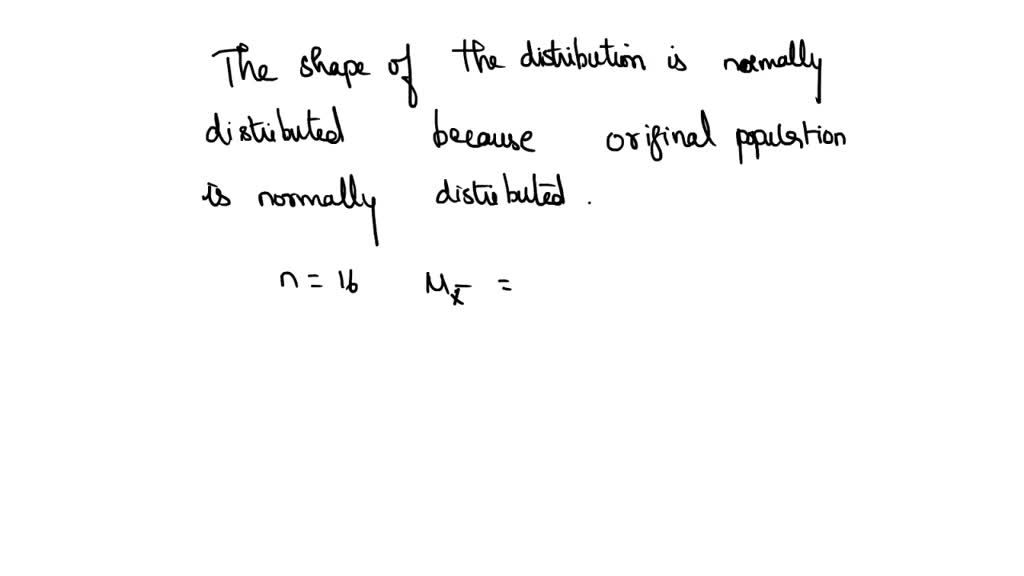 The shape of the distribution is normally
distributed because original population
is normally distributed.
n = 16 μx̄ =